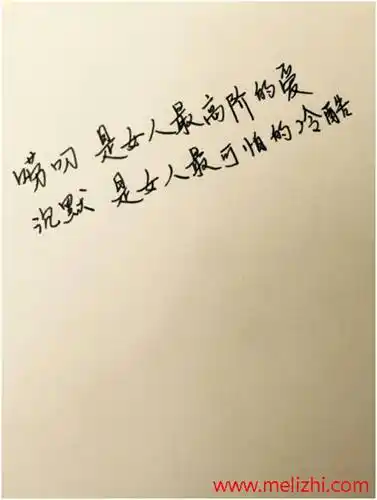 唠叨 是女人最高阶的爱
沉默 是女人最可怕的冷酷
www.melizhi.com